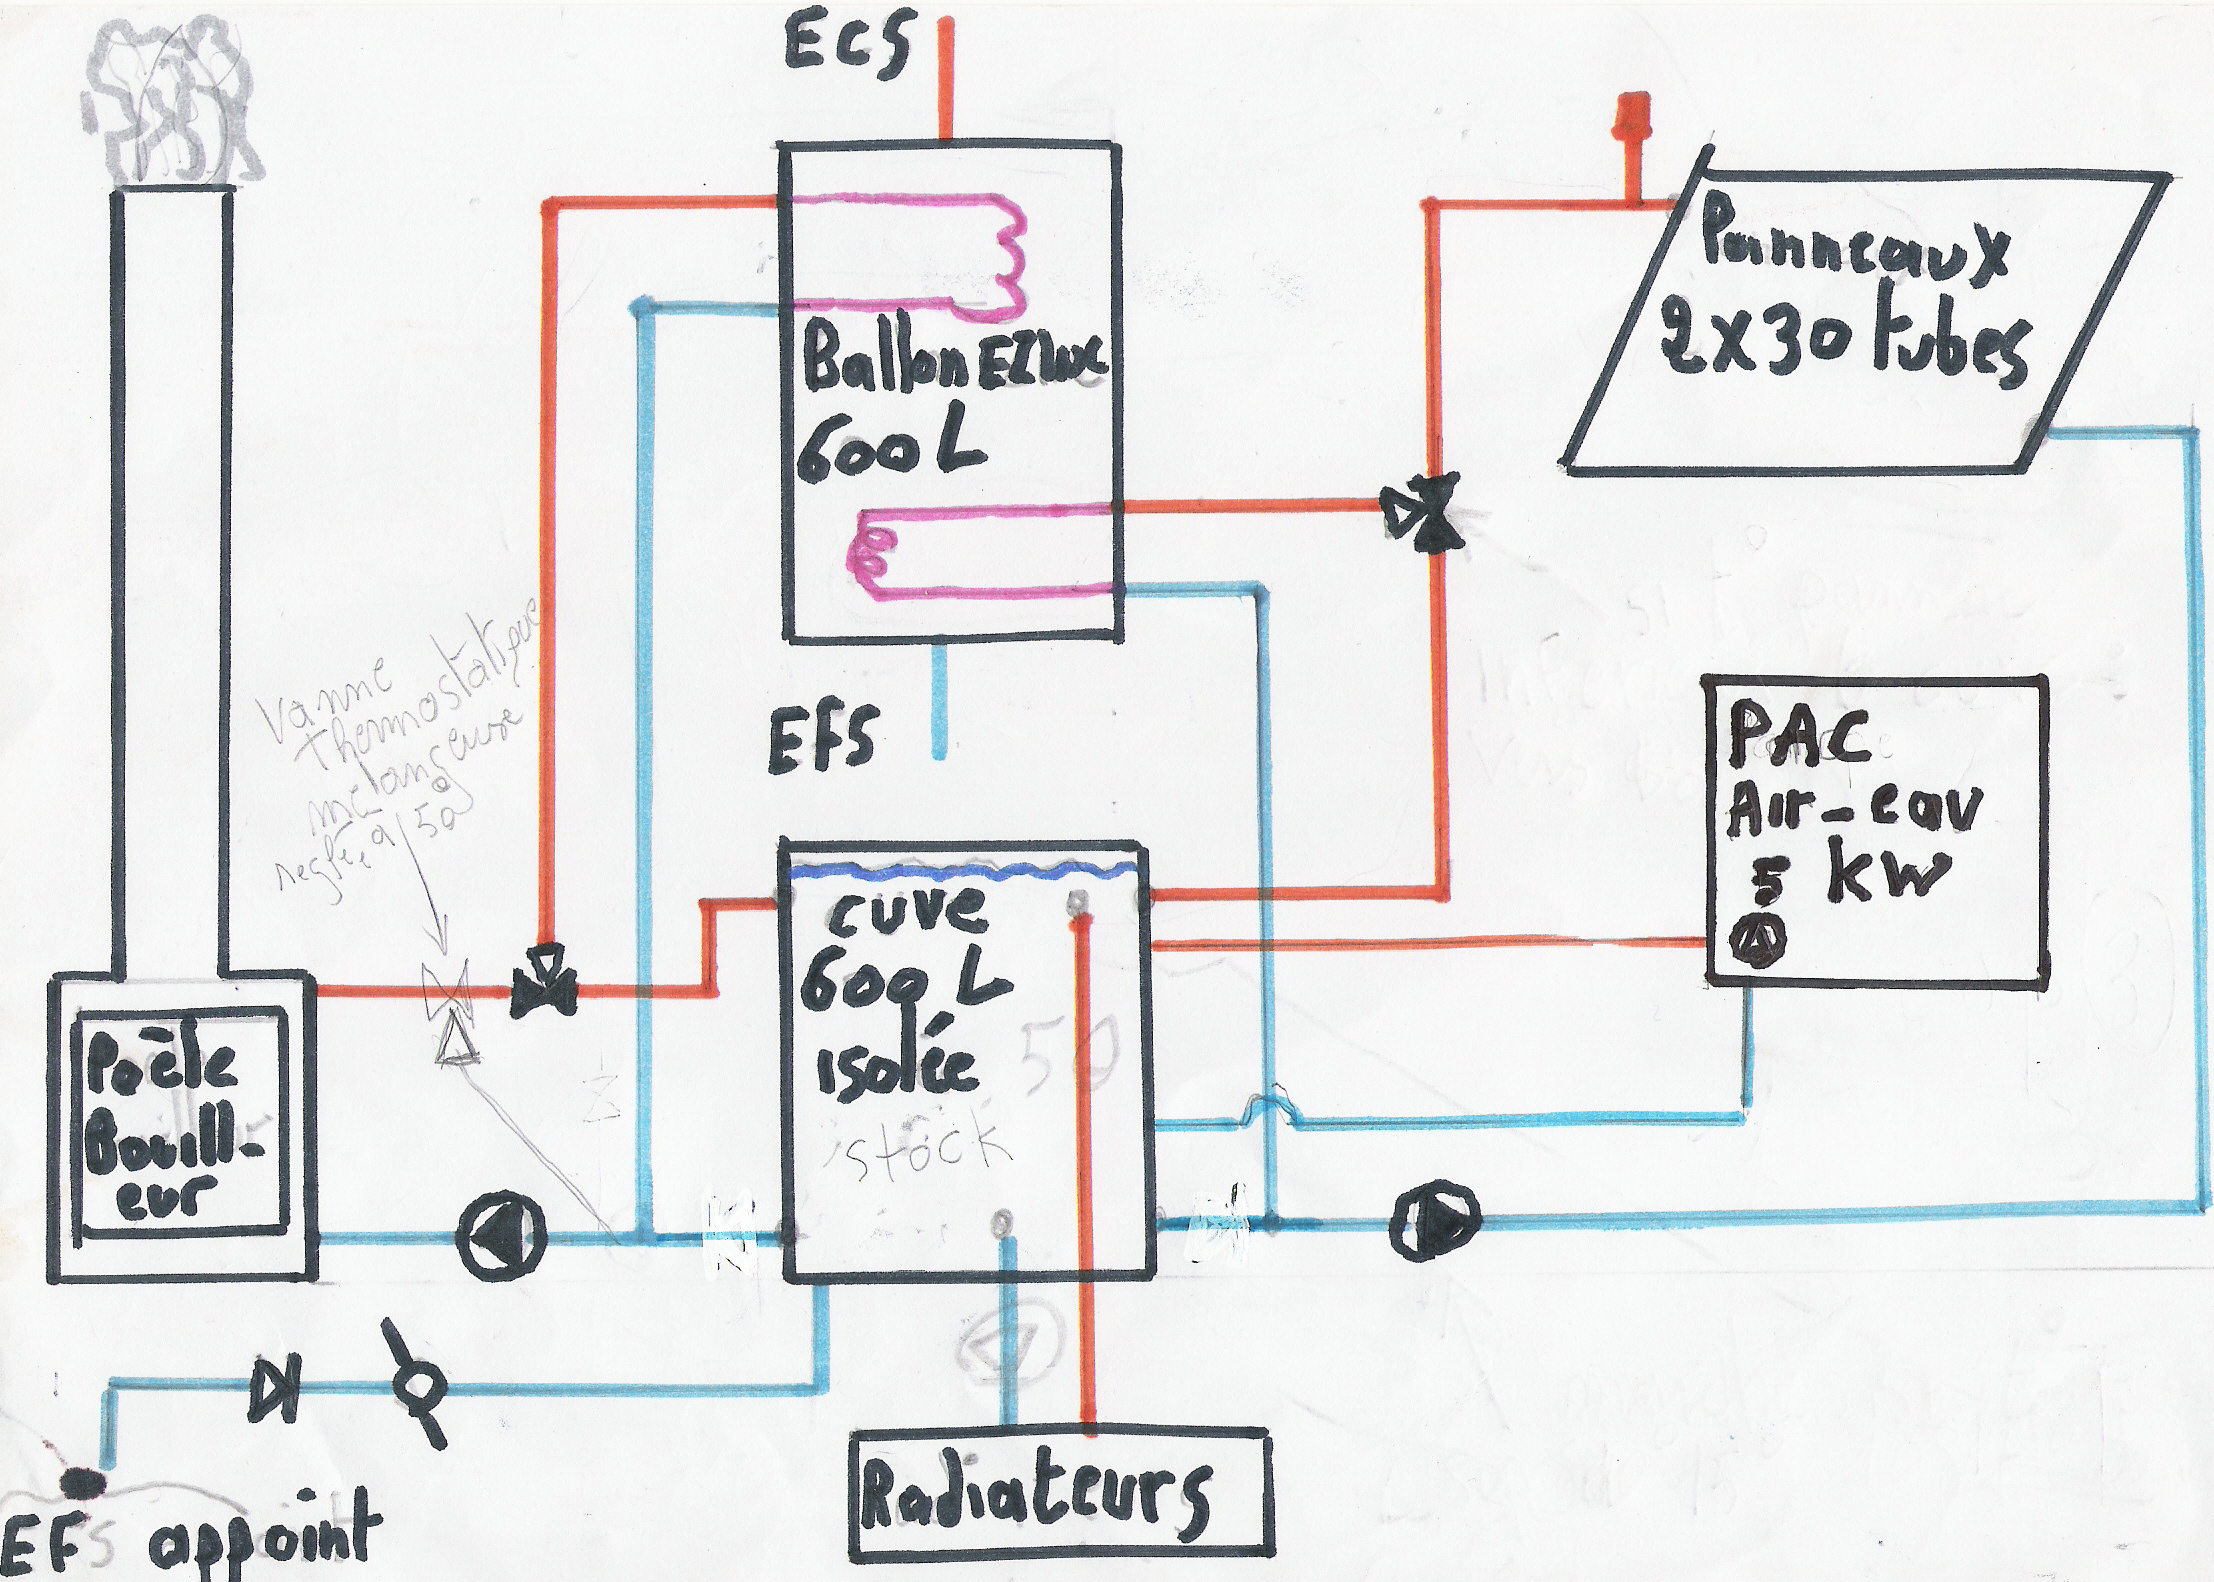 ECS
Panneaux
2x30 tubes
Ballon EZinc
600 L
vanne
thermostatique
mélangeuse
reglée à 50°
EFS
PAC
Air-eau
5 KW
cuve
600 L
isolée
50
stock
Poèle
Bouill-
eur
Radiateurs
EFS appoint